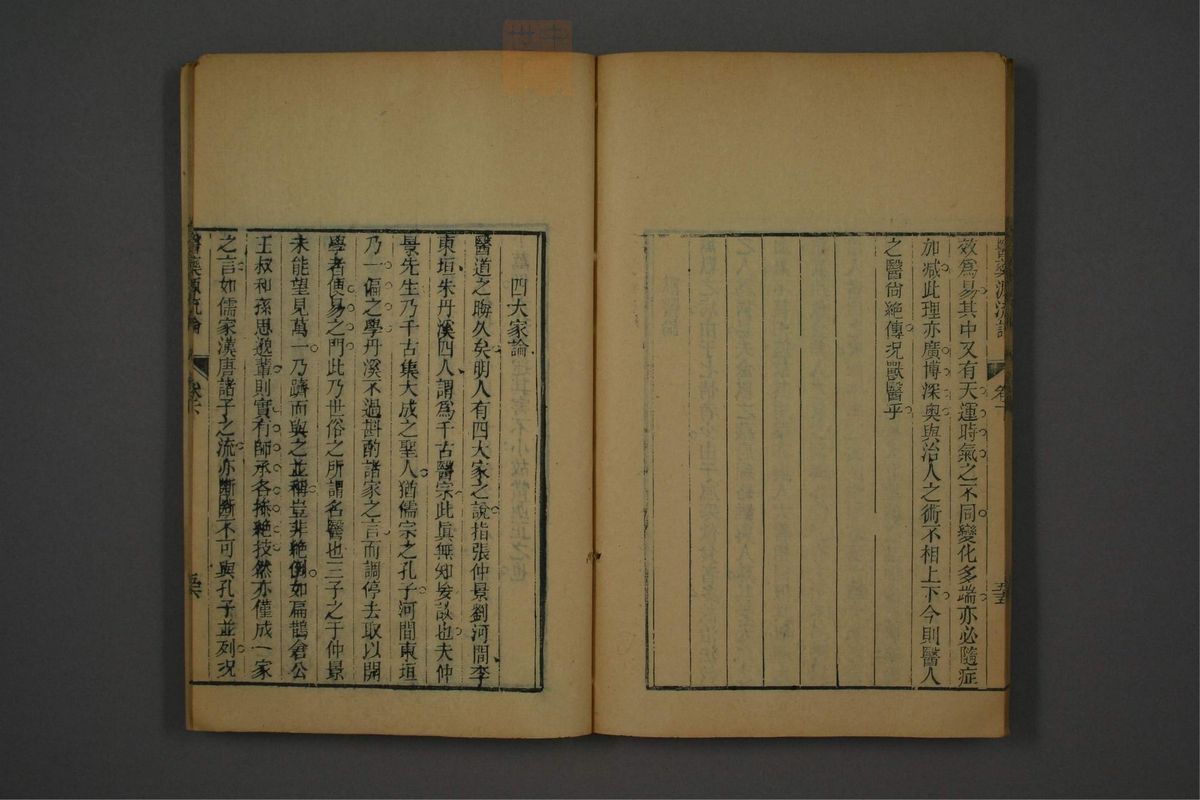 醫藥源流論
卷下
五五
效爲易其中又有天運時氣之不同變化多端亦必隨症
加减此理亦廣博深奧與治人之術不相上下今則醫人
之醫尚絶傳况獸醫乎
四大家論
醫道之晦久矣明人有四大家之說指張仲景劉河間李
東垣朱丹溪四人謂爲千古醫宗此眞無知妄談也夫仲
景先生乃千古集大成之聖人猶儒宗之孔子河間東垣
乃一偏之學丹溪不過斟酌諸家之言而調停去取以開
學者便易之門此乃世俗之所謂名醫也三子之于仲景
未能望見萬一乃躋而與之並稱豈非絶倒如扁鵲倉公
王叔和孫思邈輩則實有師承各操絶技然亦僅成一家
之言如儒家漢唐諸子之流亦斷斷不可與孔子並列况
醫藥源流論
卷下
五六